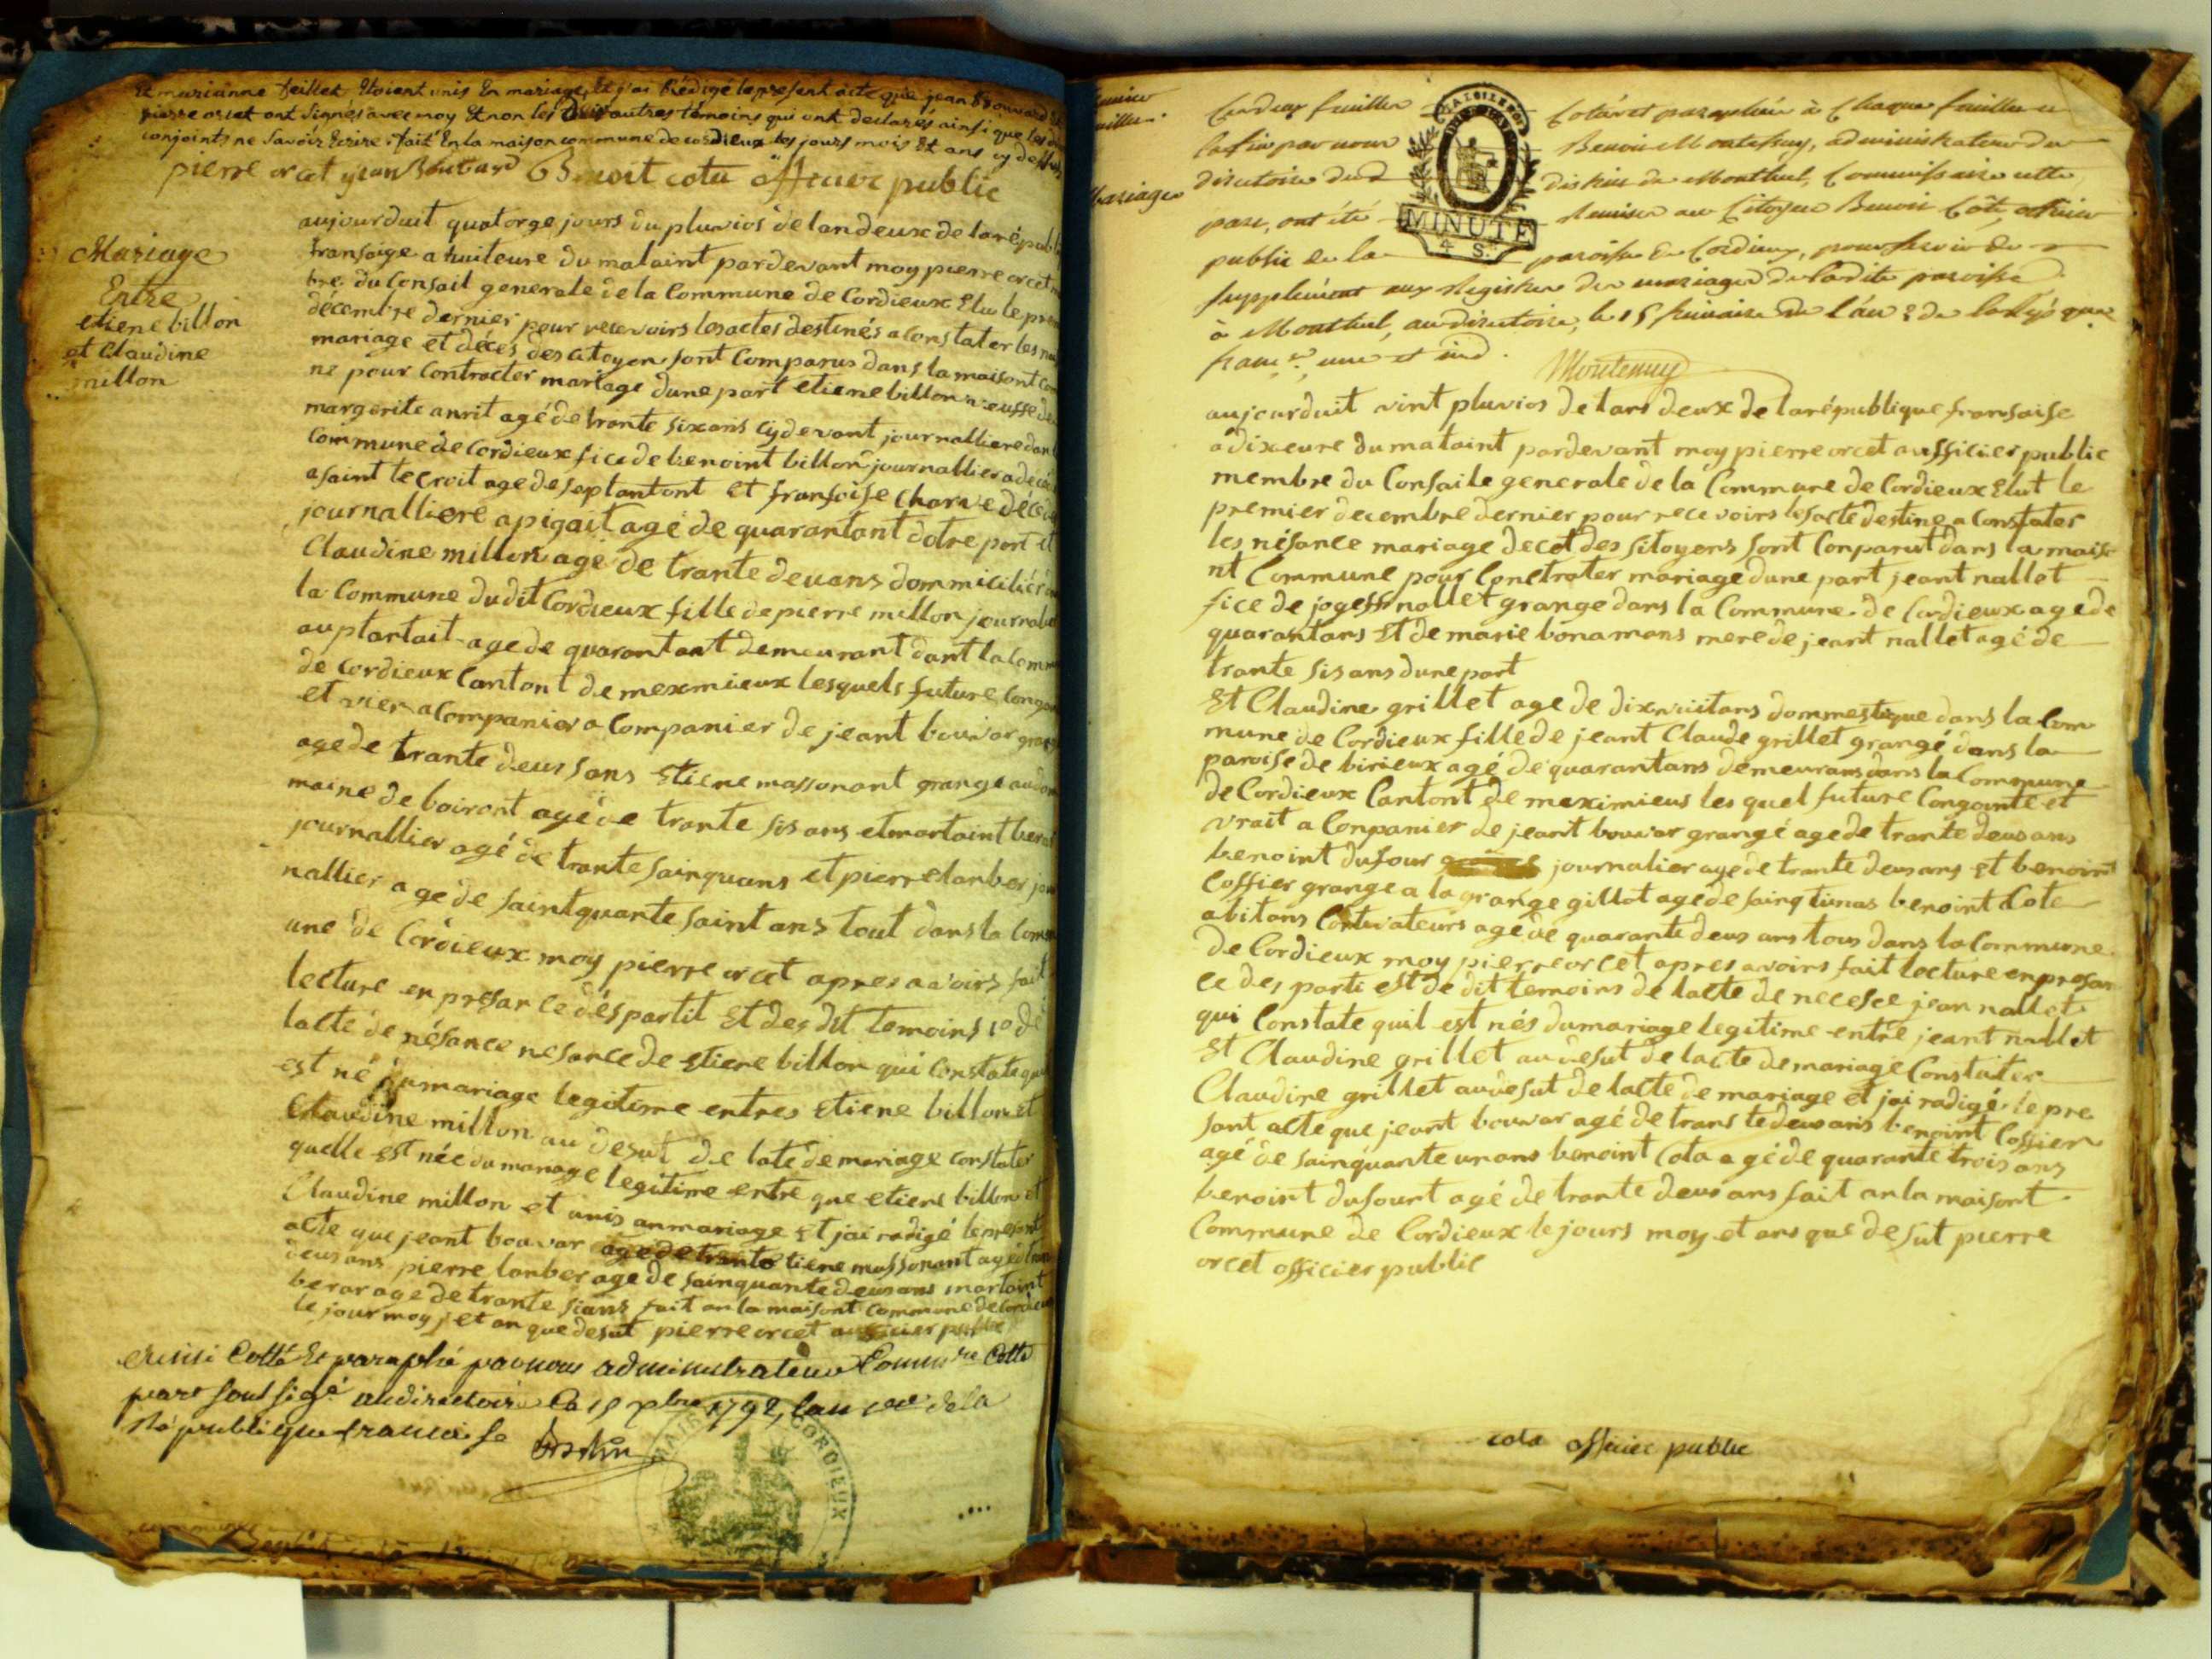 Et marianne feillet Etoient unis En mariage, Et j'ai Rédigé le present acte que jean Bouvard Et
pierre orcet ont Signés avec moy Et non les deux autres témoins qui ont declarés ainsi que les dits
conjoints ne Savoir Ecrire. fait En la maison commune de cordieux les jours mois Et ans cy dessus
pierre orcet jean Bouvard Benoit cota officier public
Mariage
Entre
etiene billon
et Claudine
millon
aujourduit quatorge jours du pluvios de lan deux de la républi
fransaige a huiteure du mataint par devant moy pierre orcet m
bre du Consail generale de la Commune de Cordieux Elu le prem
décembre dernier pour recevoirs les actes destinés a Constater les n
mariage et décès des citoyen sont Comparus dans la maisont com
ne pour Contracter mariage dune part etiene billon veuffe de
margerite anrit agé de trante six ans cy devant journalliere dan
Commune de Cordieux fice de benoint billon journallier a
a saint te Croit age de septantont et fransoise charve décéd
journalliere a pigait agé de quarantant dotre part et
Claudine millon agé de trante deuans dommicilié
la Commune dudit Cordieux fille de pierre millon journal
au plantait age de quarantant demeurant dant la comm
de cordieux Cantont de mexmieux lesquels future Conga
et vier a Companier a Companier de jeant bouvar gran
age de trante deus sans Etiene massonant grange au do
maine de boiront agé de trante sis ans et martaint bera
journallier agé de trante sainquans et pierre lanber jour
nallier age de saintquante saint ans tout dans la Comm
une de Cordieux moy pierre orcet apres avoirs fait
lecture en presance dés partit Et des dit temoins 1° de
lacte de nésance nesance de Etiene billon qui Constate qu
est né du mariage legitime entres Etiene billon et
Claudine millon au desut de late de mariage constater
quelle est née du mariage legitime entre que etiene billon et
Claudine millon et unis an mariage Et jai radigé le present
acte que jeant bouvar age de trante tiene massonant age
deus ans pierre lanber age de sainquante deusans martaint
berar age de trante sians fait an la maisont Commune de Cordieux
le jour moy et an que desut pierre orcet aufficier public
Cotté Et paraphé par nous administrateur Commre Cotte
part soussigé au directoire Ce 15 xbre 1792, lan 1er de la
République francaise
MAIRIE CORDIEUX
Mariage
Ces deux feuilles Cotés et paraphés à Chaque feuille a
la fin par nous Benoit Montessuy, administrateur du
directoire du d district de Montluel, Commissaire cette
part, ont été Remises au Citoyen Benoit Côte, officier
public de la paroisse de Cordieux, pour servir de
supplément aux Registres des mariages de ladite paroisse
à Montluel, au directoire, le 15 frimaire de l'an 2 de la Rép que
franc.se, une et ind. Montessuy
MINUTE
4 S.
aujourduit vint pluvios de lans deux de la république fransaise
a dixeure du mataint pardevant moy pierre orcet aufficier public
membre du Consaile generale de la Commune de Cordieux Elut le
premier decembre dernier pour recevoirs les acte destine a Constater
les nésance mariage decet des sitoyens sont Conparut dans la maiso
nt Commune pour Conctrater mariage dune part jeant nallet
fice de jogeff nallet grange dans la Commune de Cordieux age de
quarantans Et de marie bonamans mere de jeant nallet agé de
trante sis ans dune part
Et Claudine grillet age de dixnuitans dommestique dans la Com
mune de Cordieux fille de jeant Claude grillet grangé dans la
paroise de birieux agé de quarantans demeurans dans la Commune
de Cordieux Cantont de meximieus les quel future Congointe et
vrait a Conpanier de jeant bouvar grangé age de trante deus ans
benoint dufour journalier age de trante deus ans et benoint
Coffier grange a la grange gillot age de sainqtunas benoint Cote
abitans Contivateurs age de quarante deus ans tous dans la Commune
de Cordieux moy pierre orcet apres avoirs fait lecture en presan
ce des parti est de dit temoins de lacte de necesce jean nallet
qui Constate quil est nés du mariage legitime entre jeant nallet
Et Claudine grillet au desut de lacte de mariage Constater
Claudine grillet au desut de lacte de mariage et jai radigé le pre
sant acte que jeant bouvar agé de trans te deus ans benoint Coffier
agé de sainquante unans benoint Cota agé de quarante trois ans
benoint dufourt agé de trante deus ans fait an la maisont
Commune de Cordieux le jours moy et ans que desut pierre
orcet officier public
cota officier public